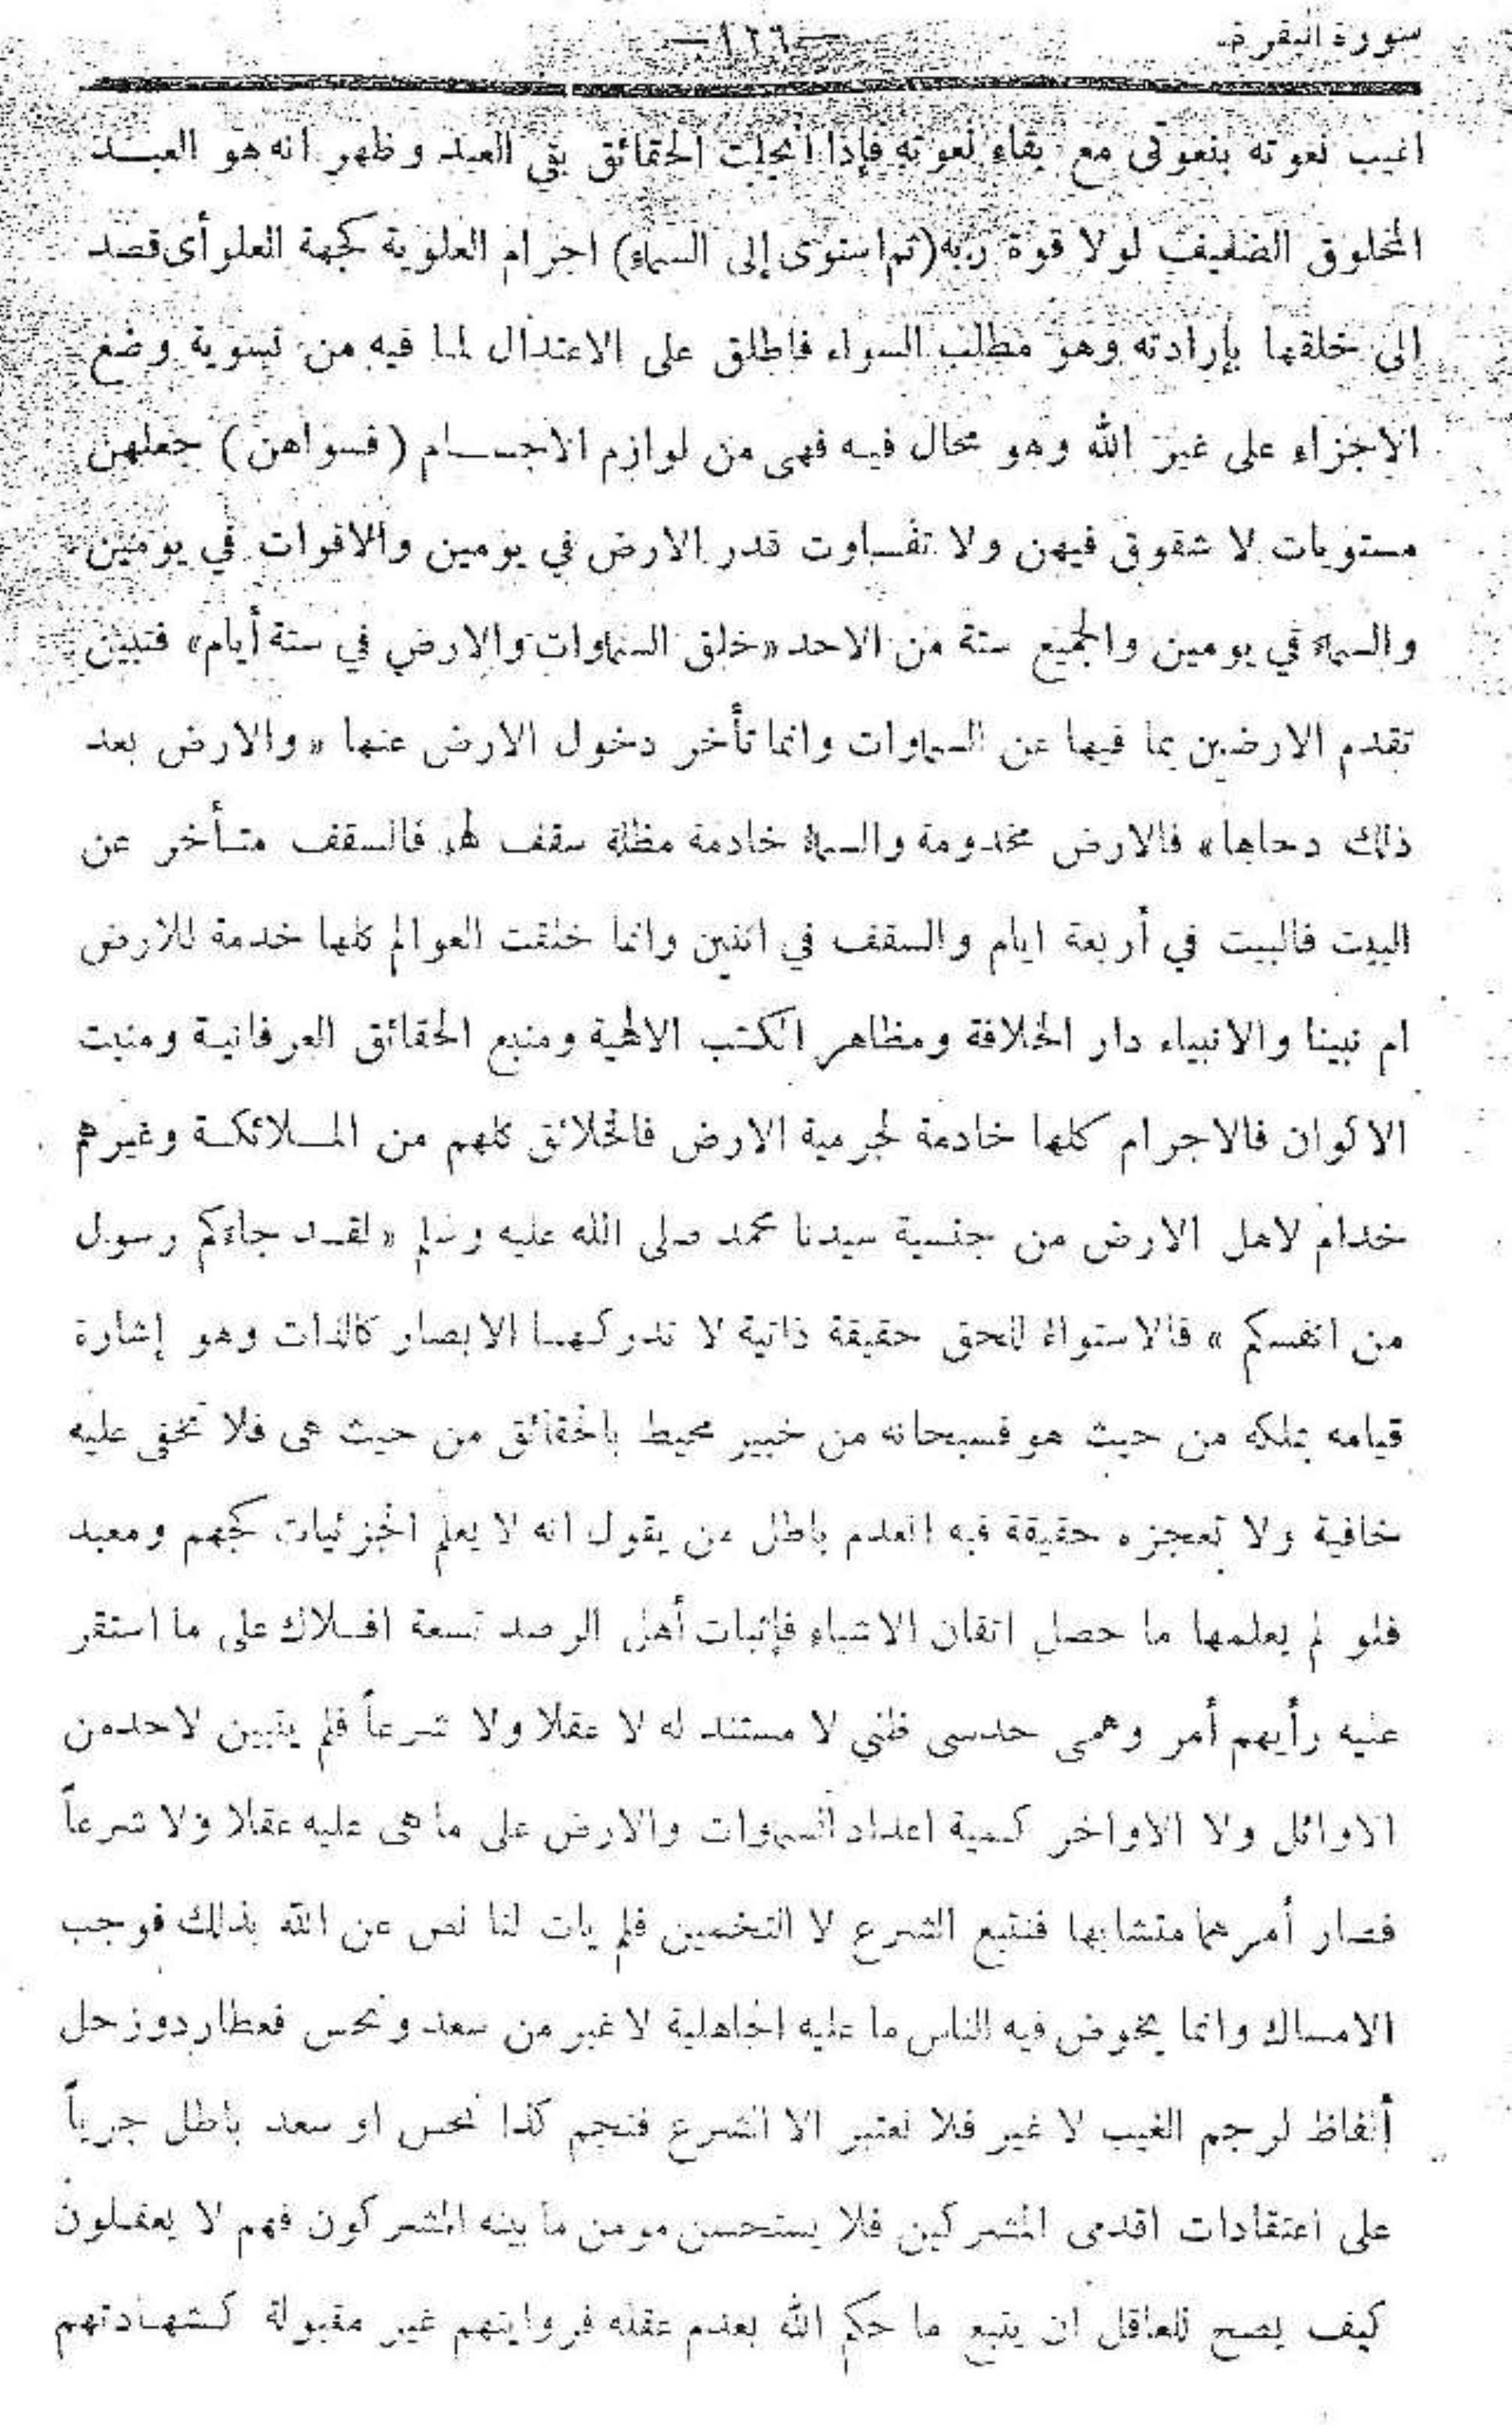 سورة البقرة
—١٢٦—
اغيب نعوته بنعوتى مع بقاء نعوته فإذا انجلت الحقائق بقي العبد وظهر انه هو العبد
المخلوق الضعيف لولا قوة ربه (ثم استوى إلى السماء) اجرام العلوية كجهة العلو أى قصد
الى خلقها بإرادته وهو مطلب السواء فاطلق على الاعتدال لما فيه من تسوية وضع
الاجزاء على غير الله وهو محال فيه فهى من لوازم الاجسام (فسواهن) جعلهن
مستويات لا شقوق فيهن ولا تفاوت قدر الارض في يومين والاقوات في يومين
والسماء في يومين والجميع ستة من الاحد «خلق السماوات والارض في ستة أيام» فتبين
تقدم الارضين بما فيها عن السماوات وانما تأخر دخول الارض عنها «والارض بعد
ذلك دحاها» فالارض مخدومة والسماء خادمة مظلة سقف لها فالسقف متأخر عن
البيت فالبيت في أربعة ايام والسقف في اثنين وانما خلقت العوالم كلها خدمة للارض
ام نبينا والانبياء دار الخلافة ومظاهر الكتب الالهية ومنبع الحقائق العرفانية ومنبت
الاكوان فالاجرام كلها خادمة لجرمية الارض فالخلائق كلهم من الملائكة وغيرهم
خدام لاهل الارض من جنسية سيدنا محمد صلى الله عليه وسلم «لقد جاءكم رسول
من انفسكم» فالاستواء للحق حقيقة ذاتية لا تدركها الابصار كالذات وهو إشارة
قيامه بملكه من حيث هو فسبحانه من خبير محيط بالحقائق من حيث هى فلا تخفى عليه
خافية ولا تعجزه حقيقة فبه انعدم باطل من يقول انه لا يعلم الجزئيات كجهم ومعبد
فلو لم يعلمها ما حصل اتقان الاشياء فإثبات أهل الرصد تسعة افلاك على ما استقر
عليه رأيهم أمر وهمى حدسى ظني لا مستند له لا عقلا ولا شرعاً فلم يتبين لاحد من
الاوائل ولا الاواخر كمية اعداد السموات والارض على ما هى عليه عقلا ولا شرعاً
فصار أمرهما متشابها فنتبع الشرع لا التخمين فلم يات لنا نص عن الله بذلك فوجب
الامساك وانما يخوض فيه الناس ما عليه الجاهلية لا غير من سعد ونحس فعطارد وزحل
ألفاظ لرجم الغيب لا غير فلا نعتبر الا الشرع فنجم كذا نحس او سعد باطل جرياً
على اعتقادات اقدمى المشركين فلا يستحسن مومن ما بينه المشركون فهم لا يعقلون
كيف يصح للعاقل ان يتبع ما حكم الله بعدم عقله فروايتهم غير مقبولة كشهادتهم